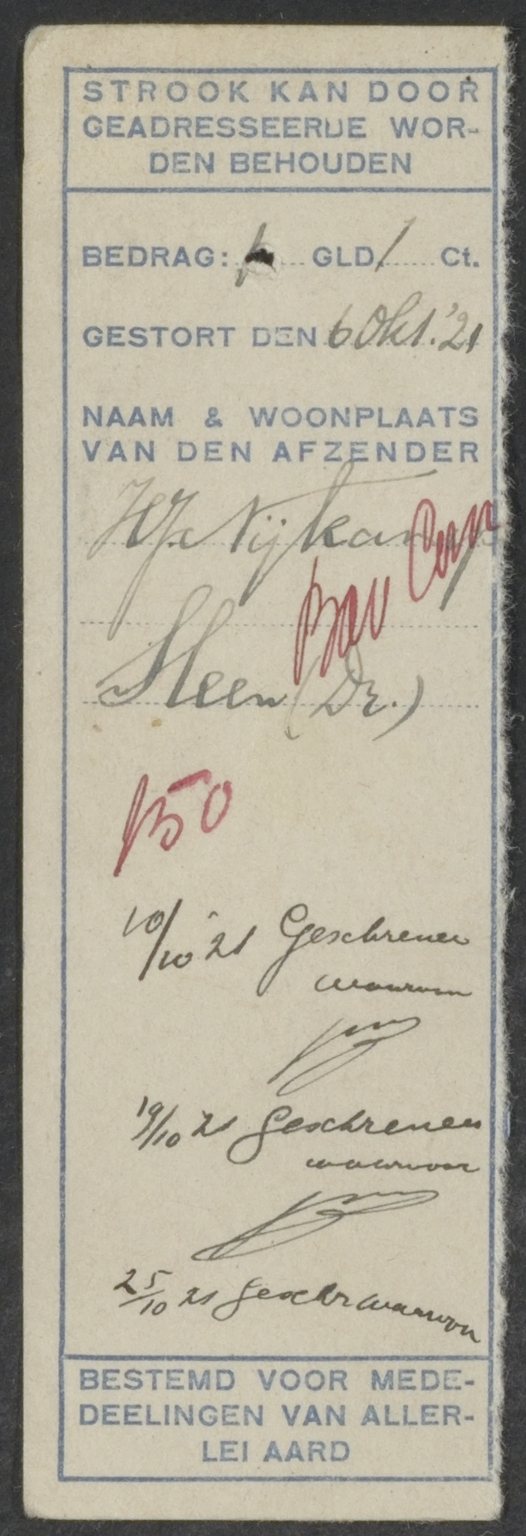 STROOK KAN DOOR
GEADRESSEERDE WOR-
DEN BEHOUDEN
BEDRAG: GLD / Ct.
GESTORT DEN 6 Okt. '21
NAAM & WOONPLAATS
VAN DEN AFZENDER
HJ. Nijkamp
Bav Corr
Sleen (Dr.)
150
10/10 '21 Geschreven
waarvoor
19/10 21 Geschreven
waarvoor
25/10 21 geschr waarvoor
BESTEMD VOOR MEDE-
DEELINGEN VAN ALLER-
LEI AARD